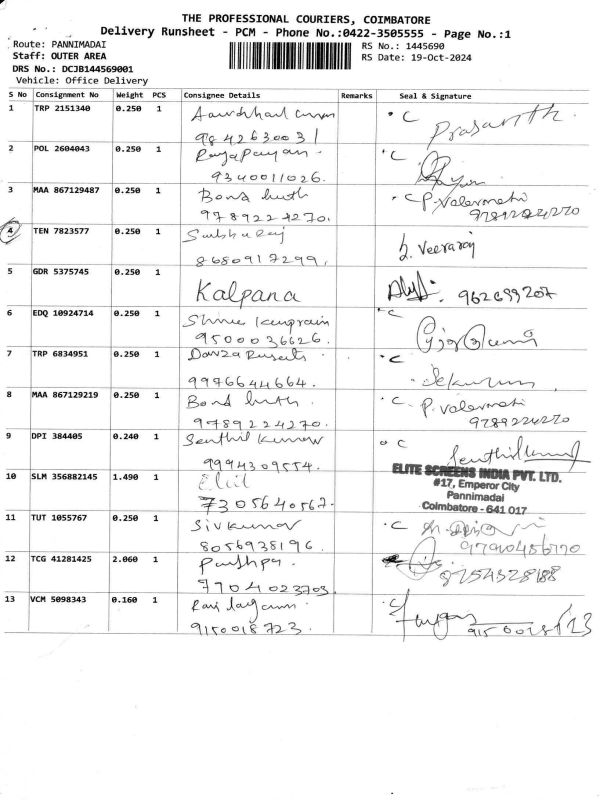 THE PROFESSIONAL COURIERS, COIMBATORE
Delivery Runsheet - PCM - Phone No.:0422-3505555 - Page No.:1
Route: PANNIMADAI
RS No.: 1445690
Staff: OUTER AREA
RS Date: 19-Oct-2024
DRS No.: DCJB144569001
Vehicle: Office Delivery
S No Consignment No Weight PCS Consignee Details Remarks Seal & Signature
1 TRP 2151340 0.250 1 C Prasanth.
9842630031
2 POL 2604043 0.250 1 Rajapayan. C
9340011026.
3 MAA 867129487 0.250 1 Bond C P. Valarmathi
9789224270. 9789224270
4 TEN 7823577 0.250 1 Subburaj Veeraraj
8680917299,
5 GDR 5375745 0.250 1 Kalpana 962699207
6 EDQ 10924714 0.250 1 Shree C
9500036626.
7 TRP 6834951 0.250 1 C
9976644664. Sekar
8 MAA 867129219 0.250 1 Bond C P. Valarmathi
9789224270. 9789224270
9 DPI 384405 0.240 1 Senthil Kumar C Senthil Kumar
9994309554.
10 SLM 356882145 1.490 1 Elil
7305640567.
ELITE SCREENS INDIA PVT. LTD.
#17, Emperor City
Pannimadai
Coimbatore - 641 017
11 TUT 1055767 0.250 1 Sivkumar C
8056938196. 9790456770
12 TCG 41281425 2.060 1
7704023703. 8754328188
13 VCM 5098343 0.160 1
9150018723. 9150018723